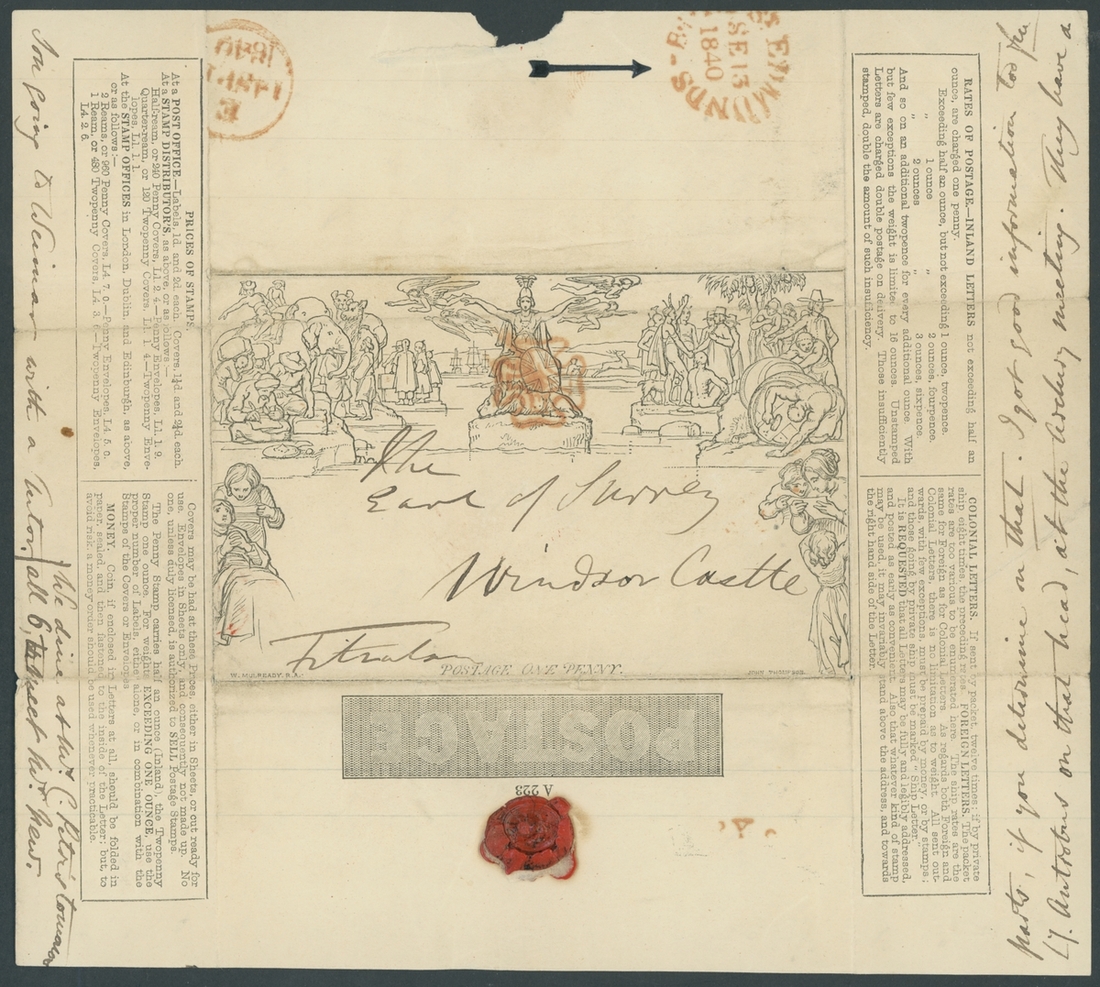 BY ST EDMUNDS
SE 13
1840
The
Earl of Surrey
Windsor Castle
POSTAGE ONE PENNY.
W. MULREADY. R.A.
JOHN THOMPSON
POSTAGE
A 223
PRICES OF STAMPS.
At a POST OFFICE.—Labels, 1d. and 2d. each. Covers, 1¼d. and 2¼d. each.
At a STAMP DISTRIBUTOR'S, as above, or as follows:—
Half-ream, or 240 Penny Covers, L1. 2. 4.—Penny Envelopes, L1. 1. 9.
Quarter-ream, or 120 Twopenny Covers, L1. 1. 4.—Twopenny Enve-
lopes, L1. 1. 1.
At the STAMP OFFICES in London, Dublin, and Edinburgh, as above,
or as follows:—
2 Reams, or 960 Penny Covers, L4. 7. 0.—Penny Envelopes, L4. 5. 0.
1 Ream, or 480 Twopenny Covers, L4. 3. 6.—Twopenny Envelopes,
L4. 2. 6.
Covers may be had at these Prices, either in Sheets, or cut ready for
use. Envelopes in Sheets only, and consequently not made up. No
one, unless duly licensed, is authorized to SELL Postage Stamps.
The Penny Stamp carries half an ounce (Inland), the Twopenny
Stamp one ounce. For weights EXCEEDING ONE OUNCE, use the
proper number of Labels, either alone, or in combination with the
Stamps of the Covers or Envelopes.
MONEY. Coin, if enclosed in Letters at all, should be folded in
paper, sealed, and then fastened to the inside of the Letter; but, to
avoid risk, a money order should be used whenever practicable.
RATES OF POSTAGE—INLAND LETTERS not exceeding half an
ounce, are charged one penny.
Exceeding half an ounce, but not exceeding 1 ounce, twopence.
" 1 ounce " 2 ounces, fourpence.
" 2 ounces " 3 ounces, sixpence.
And so on an additional twopence for every additional ounce. With
but few exceptions the weight is limited to 16 ounces. Unstamped
Letters are charged double postage on delivery. Those insufficiently
stamped, double the amount of such insufficiency.
COLONIAL LETTERS. If sent by packet, twelve times; if by private
ship, eight times, the preceding rates. FOREIGN LETTERS. The packet
rates are too various to be enumerated here. The ship rates are the
same for Foreign as for Colonial Letters. As regards both Foreign and
Colonial Letters, there is no limitation as to weight. All sent out-
wards, with few exceptions, must be prepaid by money, or by stamps;
and those going by private ship must be marked "Ship Letter."
It is REQUESTED that all Letters may be fully and legibly addressed,
and posted as early as convenient. Also that whatever kind of stamp
may be used, it may invariably stand above the address, and towards
the right hand side of the Letter.
You going to Weimar with a Tutor.
We dine at
all 6,
parts, if you determine on that. I got good information too
on that head, at the Archery meeting. They have a